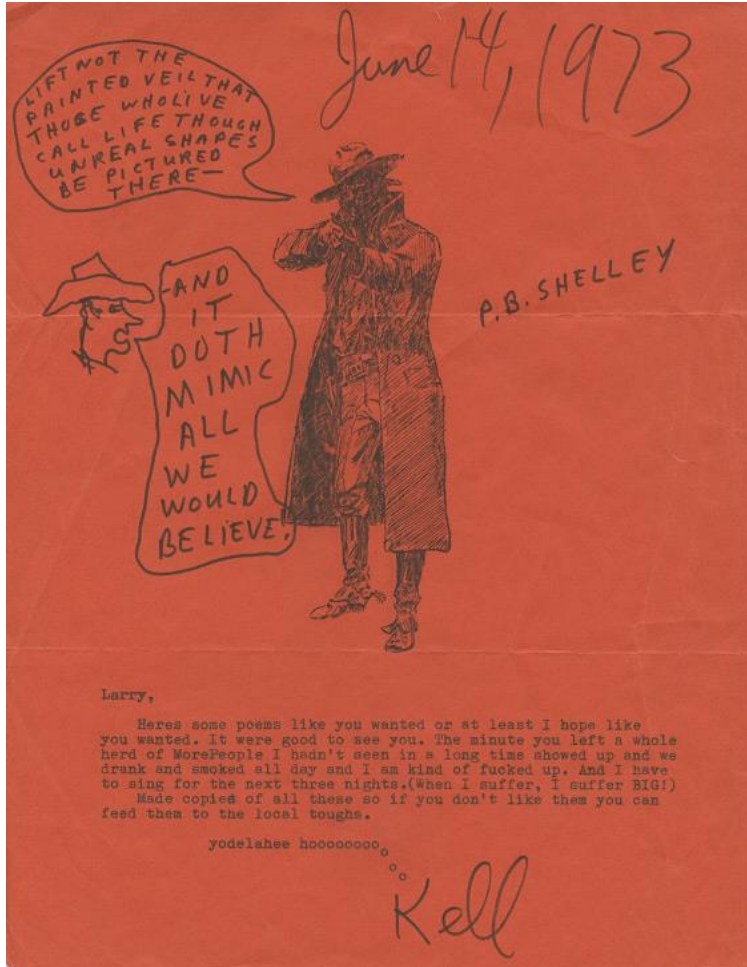 June 14, 1973
LIFT NOT THE
PAINTED VEIL THAT
THOSE WHO LIVE
CALL LIFE THOUGH
UNREAL SHAPES
BE PICTURED
THERE—
-AND
IT
DOTH
MIMIC
ALL
WE
WOULD
BELIEVE.
P.B. SHELLEY
Larry,
Heres some poems like you wanted or at least I hope like
you wanted. It were good to see you. The minute you left a whole
herd of MorePeople I hadn't seen in a long time showed up and we
drank and smoked all day and I am kind of fucked up. And I have
to sing for the next three nights.(When I suffer, I suffer BIG!)
Made copies of all these so if you don't like them you can
feed them to the local toughs.
yodelahee hoooooooo
o
o
o
Kell